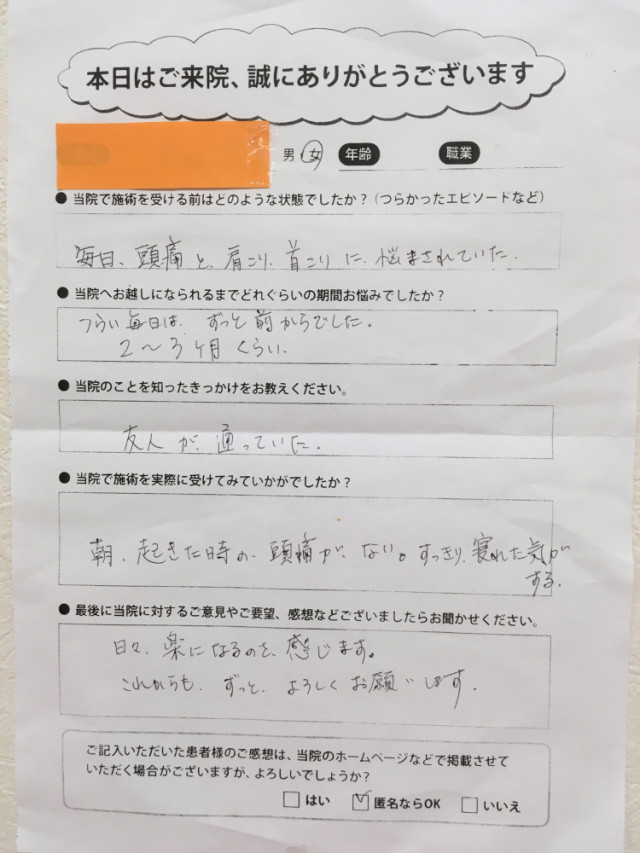 本日はご来院、誠にありがとうございます
男・女 年齢 職業
● 当院で施術を受ける前はどのような状態でしたか？（つらかったエピソードなど）
毎日、頭痛と、肩こり、首こりに、悩まされていた。
● 当院へお越しになられるまでどれぐらいの期間お悩みでしたか？
つらい毎日は、ずっと前からでした。
2～3ヶ月くらい.
● 当院のことを知ったきっかけをお教えください。
友人が、通っていた。
● 当院で施術を実際に受けてみていかがでしたか？
朝、起きた時の、頭痛が、ない。すっきり、寝れた気が
する。
● 最後に当院に対するご意見やご要望、感想などございましたらお聞かせください。
日々、楽になるのを、感じます。
これからも、ずっと、よろしくお願いします.
ご記入いただいた患者様のご感想は、当院のホームページなどで掲載させて
いただく場合がございますが、よろしいでしょうか？
□ はい ☑ 匿名ならOK □ いいえ